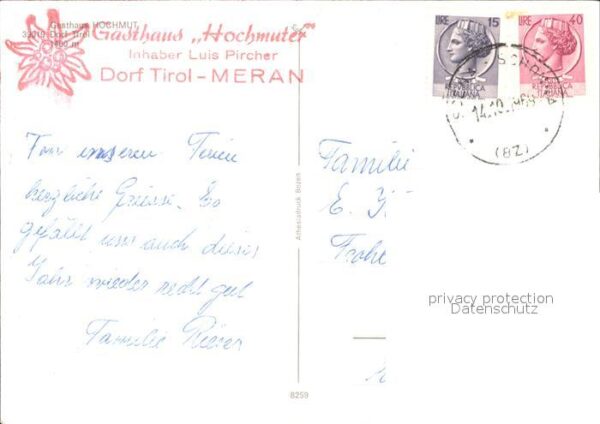 Gasthaus HOCHMUT
Dorf Tirol
Gasthaus „Hochmuter"
Inhaber Luis Pircher
Dorf Tirol - MERAN
LIRE 15
REPVBBLICA
ITALIANA
LIRE 40
REPVBBLICA
ITALIANA
14.10.
(BZ)
Von unseren Ferien
herzliche Grüsse. Es
gefällt uns auch dieses
Jahr wieder recht gut
Familie
Familie
E.
Athesiadruck Bozen
privacy protection
Datenschutz
8259